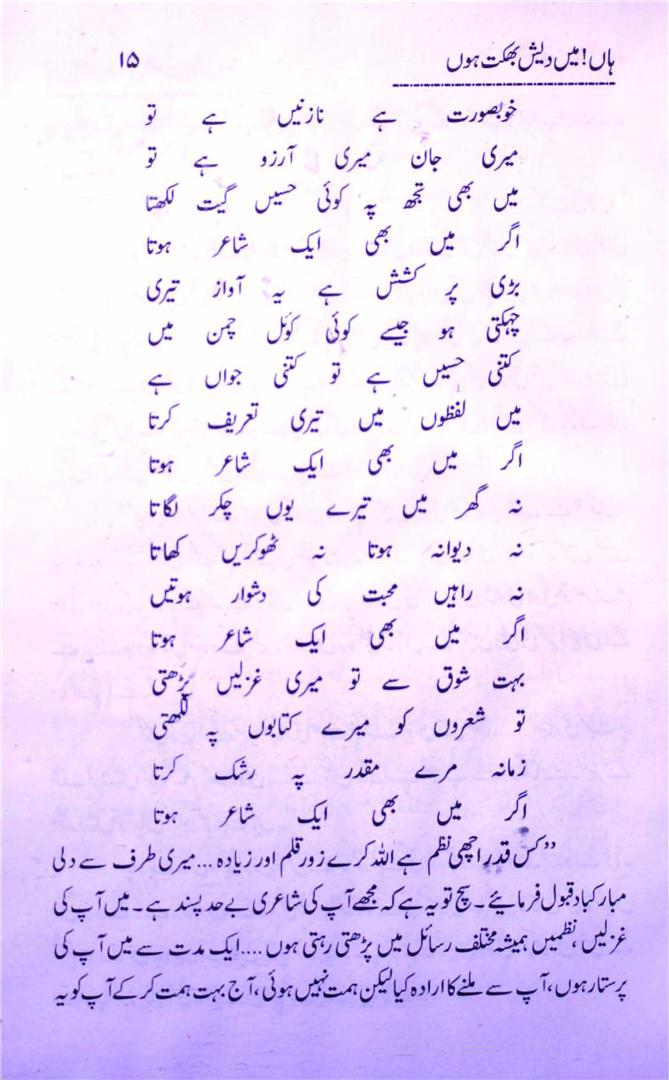 ہاں! میں دیش بھکت ہوں ۱۵
خوبصورت ہے نازنیں ہے تو
میری جان میری آرزو ہے تو
میں بھی تجھ پہ کوئی حسیں گیت لکھتا
اگر میں بھی ایک شاعر ہوتا
بڑی پر کشش ہے یہ آواز تیری
چہکتی ہو جیسے کوئی کوئل چمن میں
کتنی حسیں ہے تو کتنی جواں ہے
میں لفظوں میں تیری تعریف کرتا
اگر میں بھی ایک شاعر ہوتا
نہ گھر میں تیرے یوں چکر لگاتا
نہ دیوانہ ہوتا نہ ٹھوکریں کھاتا
نہ راہیں محبت کی دشوار ہوتیں
اگر میں بھی ایک شاعر ہوتا
بہت شوق سے تو میری غزلیں پڑھتی
تو شعروں کو میرے کتابوں پہ لکھتی
زمانہ مرے مقدر پہ رشک کرتا
اگر میں بھی ایک شاعر ہوتا
”کس قدر اچھی نظم ہے اللہ کرے زور قلم اور زیادہ ... میری طرف سے دلی
مبارکباد قبول فرمائیے۔ سچ تو یہ ہے کہ مجھے آپ کی شاعری بے حد پسند ہے۔ میں آپ کی
غزلیں، نظمیں ہمیشہ مختلف رسائل میں پڑھتی رہتی ہوں .... ایک مدت سے میں آپ کی
پرستار ہوں، آپ سے ملنے کا ارادہ کیا لیکن ہمت نہیں ہوئی، آج بہت ہمت کر کے آپ کو یہ